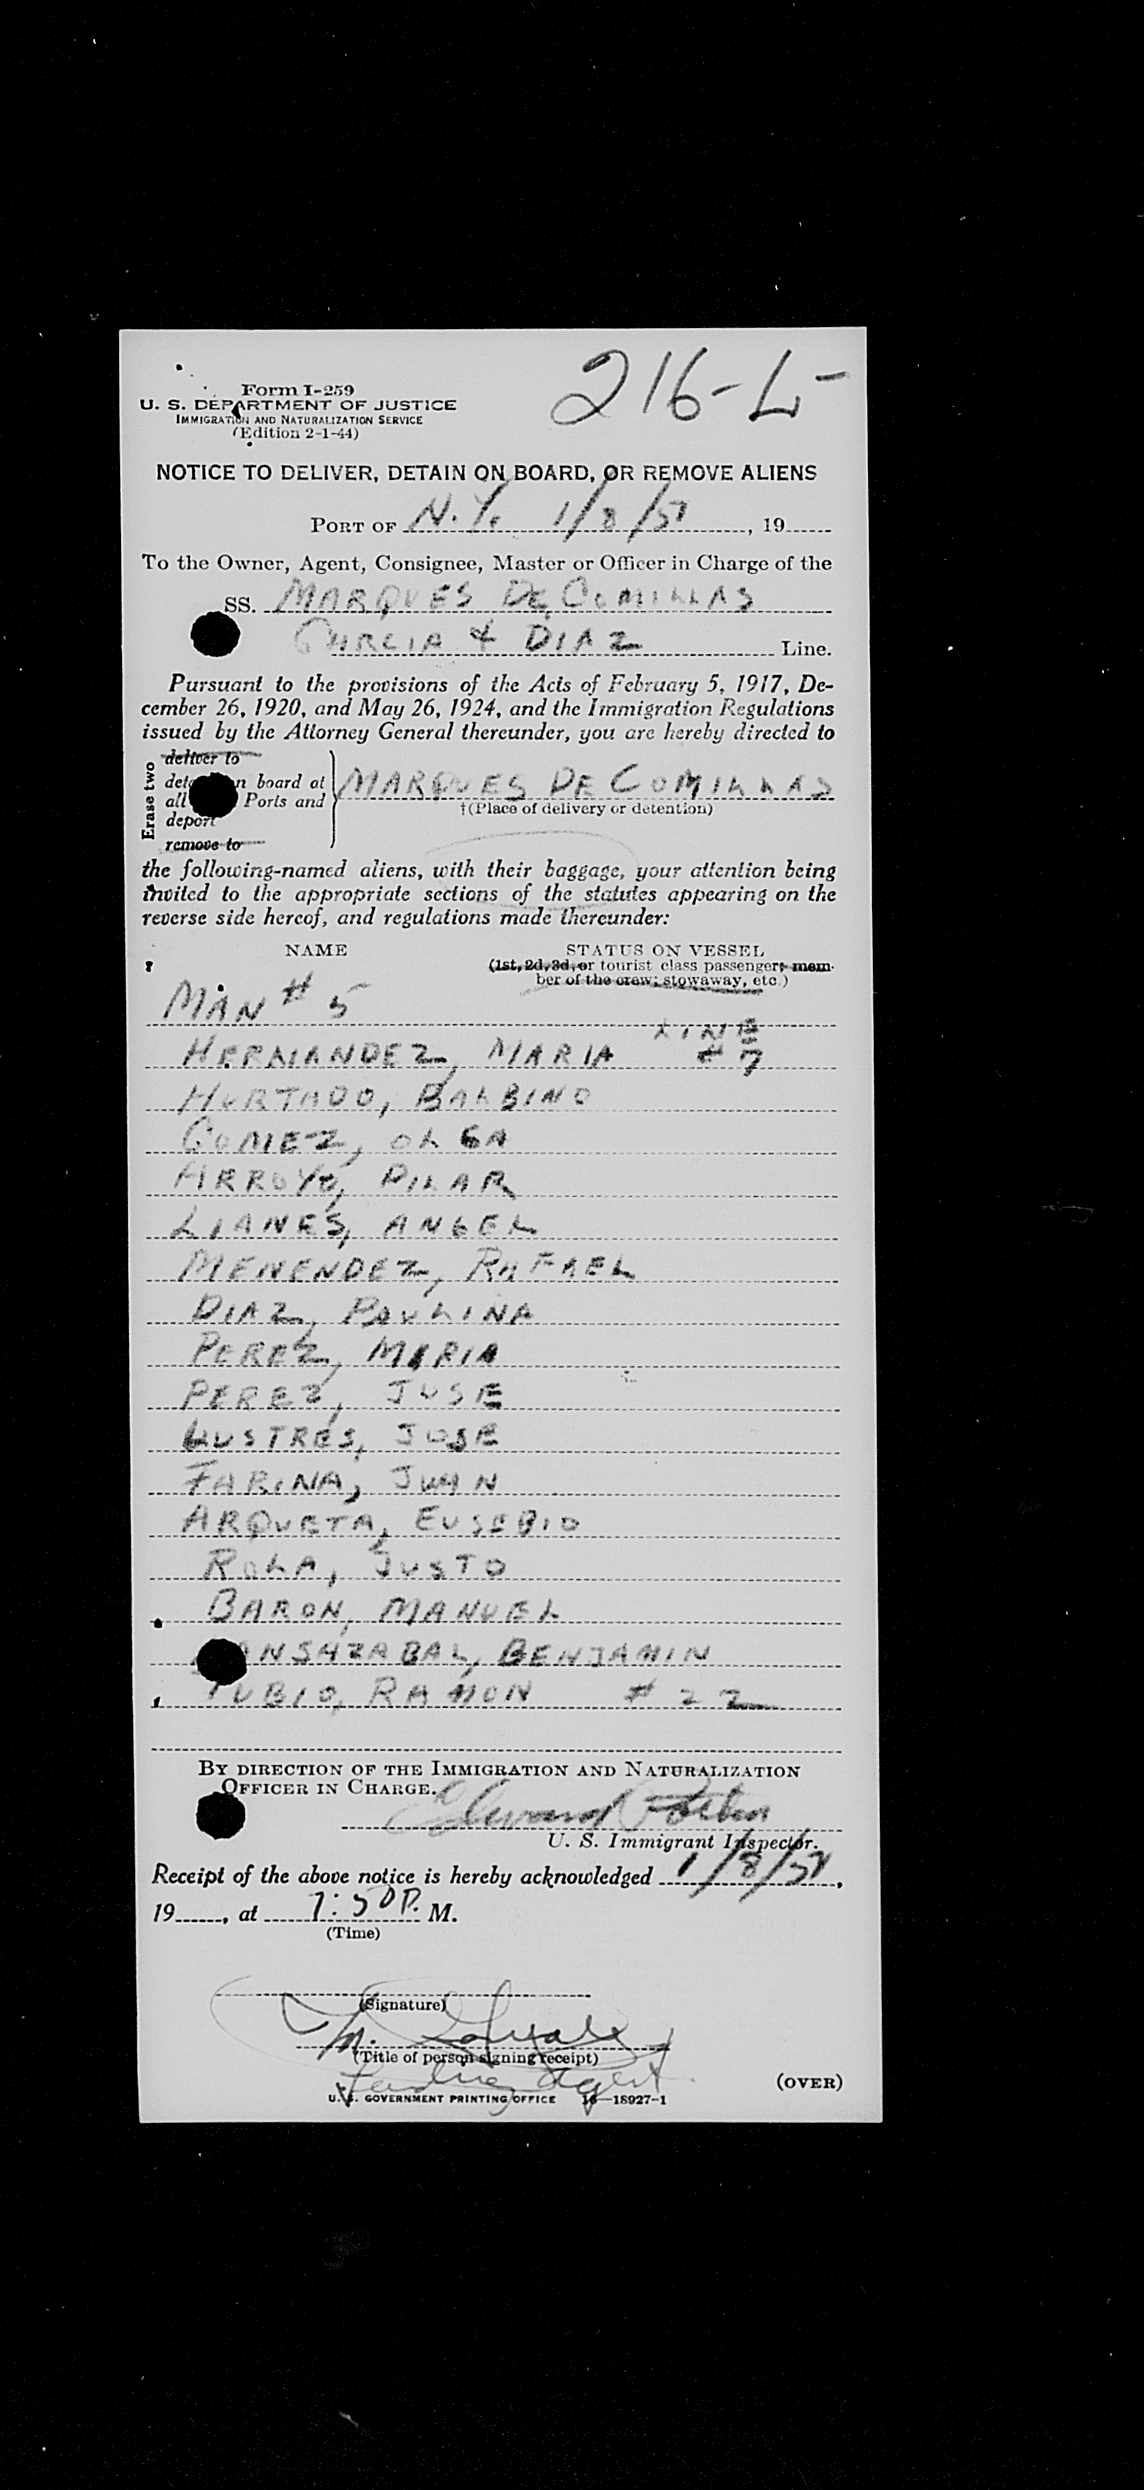 216-L-
Form I-259
U. S. DEPARTMENT OF JUSTICE
IMMIGRATION AND NATURALIZATION SERVICE
(Edition 2-1-44)
NOTICE TO DELIVER, DETAIN ON BOARD, OR REMOVE ALIENS
PORT OF N.Y. 1/8/51, 19
To the Owner, Agent, Consignee, Master or Officer in Charge of the
SS. MARQUES DE COMILLAS
GARCIA & DIAZ Line.
Pursuant to the provisions of the Acts of February 5, 1917, De-
cember 26, 1920, and May 26, 1924, and the Immigration Regulations
issued by the Attorney General thereunder, you are hereby directed to
Erase two
deliver to
on board at
all Ports and
deport
remove to
MARQUES DE COMILLAS
†(Place of delivery or detention)
the following-named aliens, with their baggage, your attention being
invited to the appropriate sections of the statutes appearing on the
reverse side hereof, and regulations made thereunder:
NAME STATUS ON VESSEL
(1st, 2d, 3d, or tourist class passenger; mem-
ber of the crew; stowaway, etc.)
MAN # 5
HERNANDEZ, MARIA LINE # 7
HURTADO, BALBINO
GOMEZ, OLGA
ARROYO, PILAR
LIANES, ANGEL
MENENDEZ, RAFAEL
DIAZ, PAULINA
PEREZ, MARIA
PEREZ, JOSE
JOSE
FARINA, JUAN
ARQUETA, EUSEBIO
ROLA, JUSTO
BARON, MANUEL
BENJAMIN
RAMON # 22
BY DIRECTION OF THE IMMIGRATION AND NATURALIZATION
OFFICER IN CHARGE.
Edward
U. S. Immigrant Inspector.
Receipt of the above notice is hereby acknowledged 1/8/51,
19, at 7:50 P. M.
(Time)
(Signature)
M.
(Title of person signing receipt)
Agent
U. S. GOVERNMENT PRINTING OFFICE 16—18927-1
(OVER)